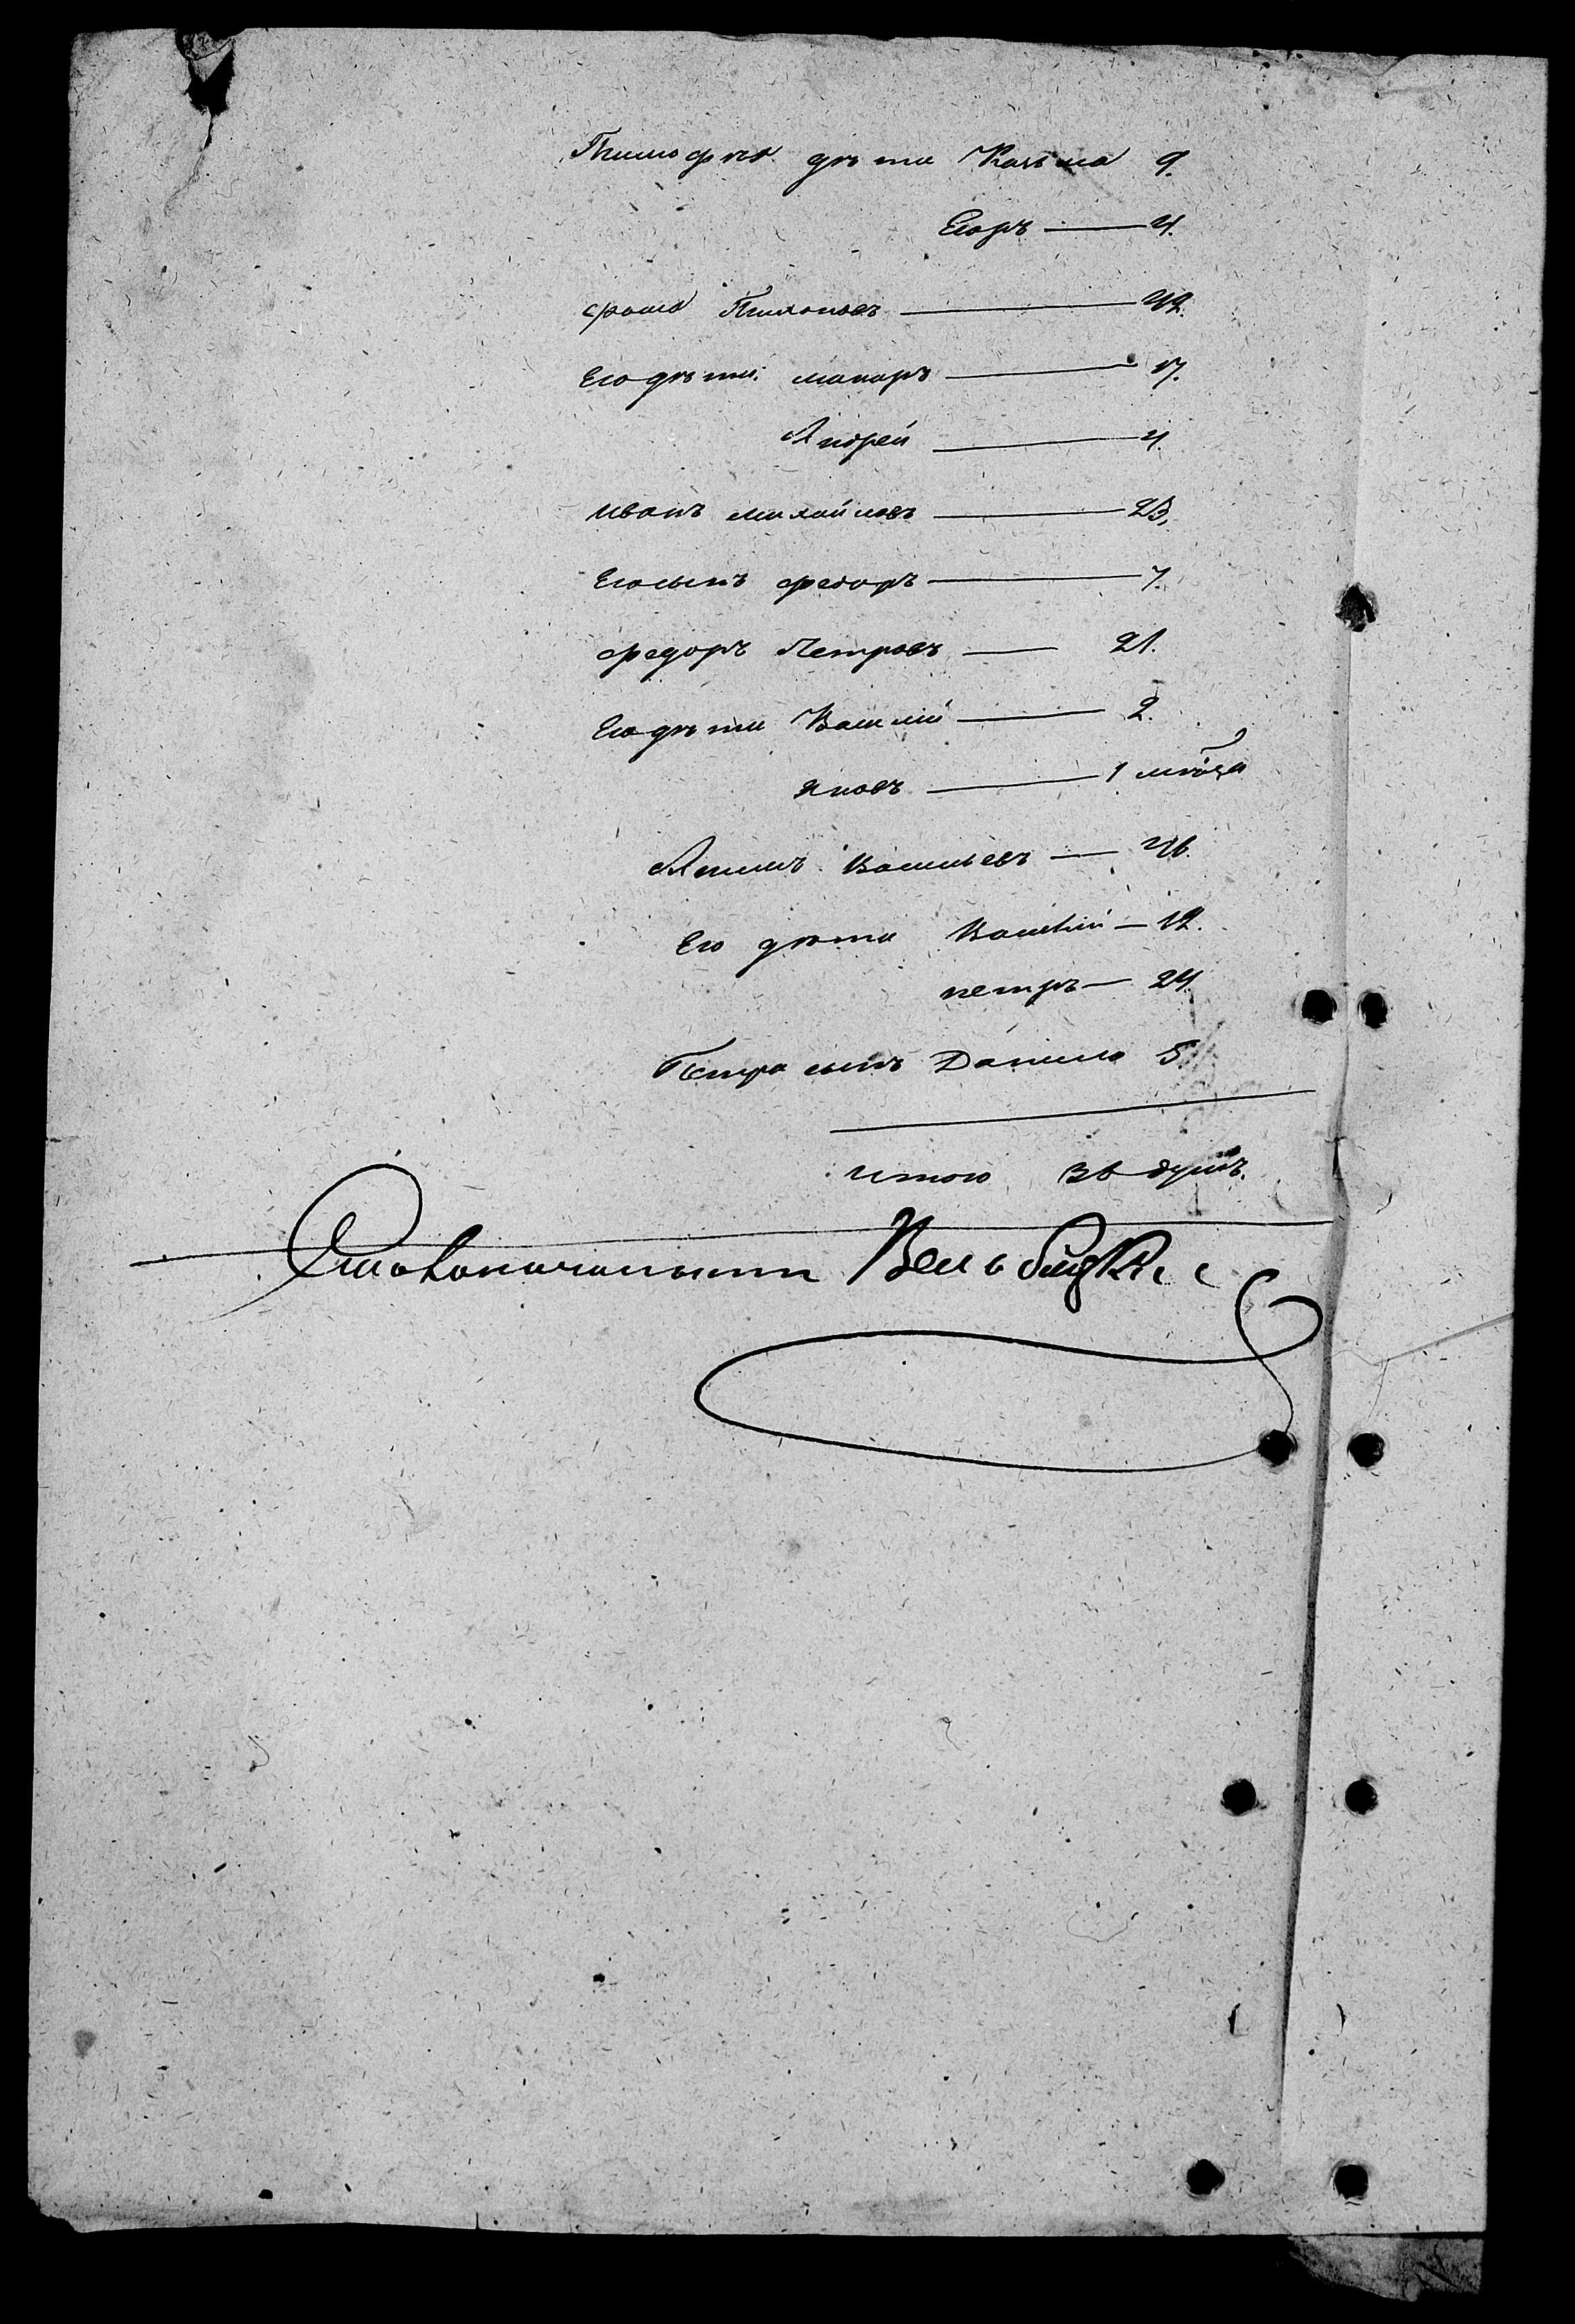 Тимофея дѣти Козьма 9.
Егоръ — 4.
Фома Тихоновъ — 42.
Его дѣти: Макаръ — 17.
Андрей — 4.
Иванъ Михайловъ — 23,
Его сынъ Федоръ — 7.
Федоръ Петровъ — 21.
Его дѣти Василий — 2.
Яковъ — 1 мѣсяца
Акимъ Васильевъ — 46.
Его дѣти Василий — 12.
Петръ — 24.
Петра сынъ Данило 5.
Итого 36 душъ.
Столоначальникъ Вельбицкий